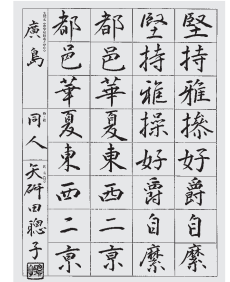 堅持雅操好爵自縻
堅持雅操好爵自縻
都邑華夏東西二京
都邑華夏東西二京
廣島
同人
矢野田聰子